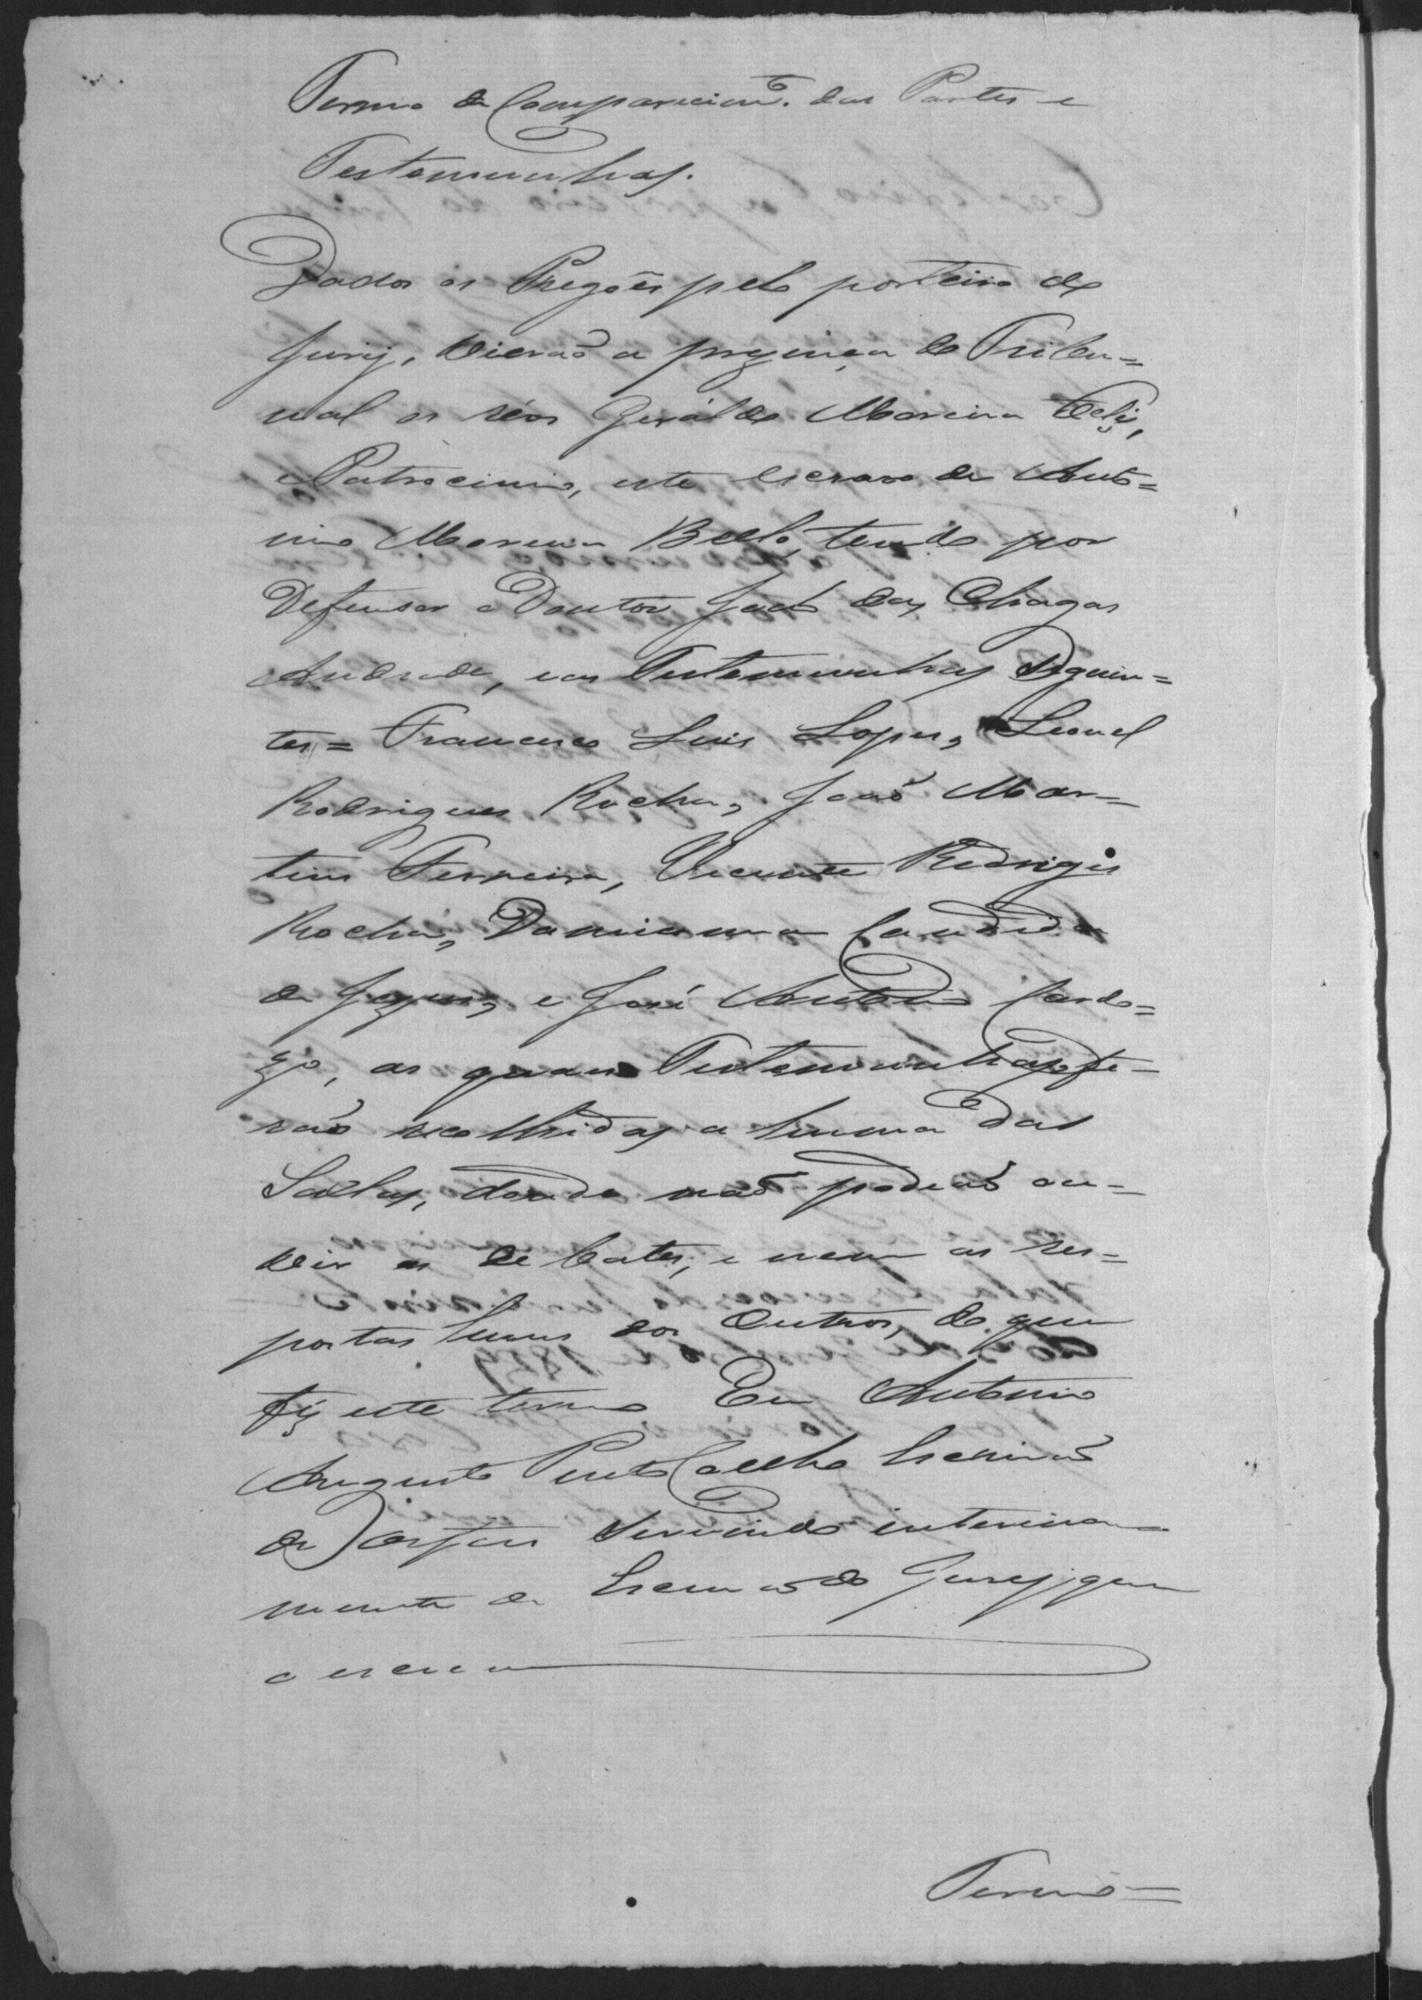 Termo de Comparecim.to das Partes e
Testemunhas.
Dados os Pregões pelo porteiro do
Jury, vierão a prezença do Tribu=
nal os réos Geraldo Moreira
e Patrocinio, este escravo de Anto=
nio Moreira Bello, tendo por
Defensor o Doutor das Chagas
Andrade, e as Testemunhas seguin=
tes = Francisco Luis Lopes, Leonel
Rodrigues Rocha, João Mar=
tins Ferreira, Vicente Rodrigues
Rocha, Damianna Candida
de Jezus, e José Antonio Cardo=
zo, as quaes Testemunhas fo=
rão recolhidas a huma das
Sallas, donde não podião ou=
vir os debates, e nem as res=
postas huns dos outros, do que
fiz este termo Eu Antonio
Augusto Pinto Coelho Escrivão
de Orfãos servindo interina
mente de Escrivão do Jury, que
o escrevi
Termo=